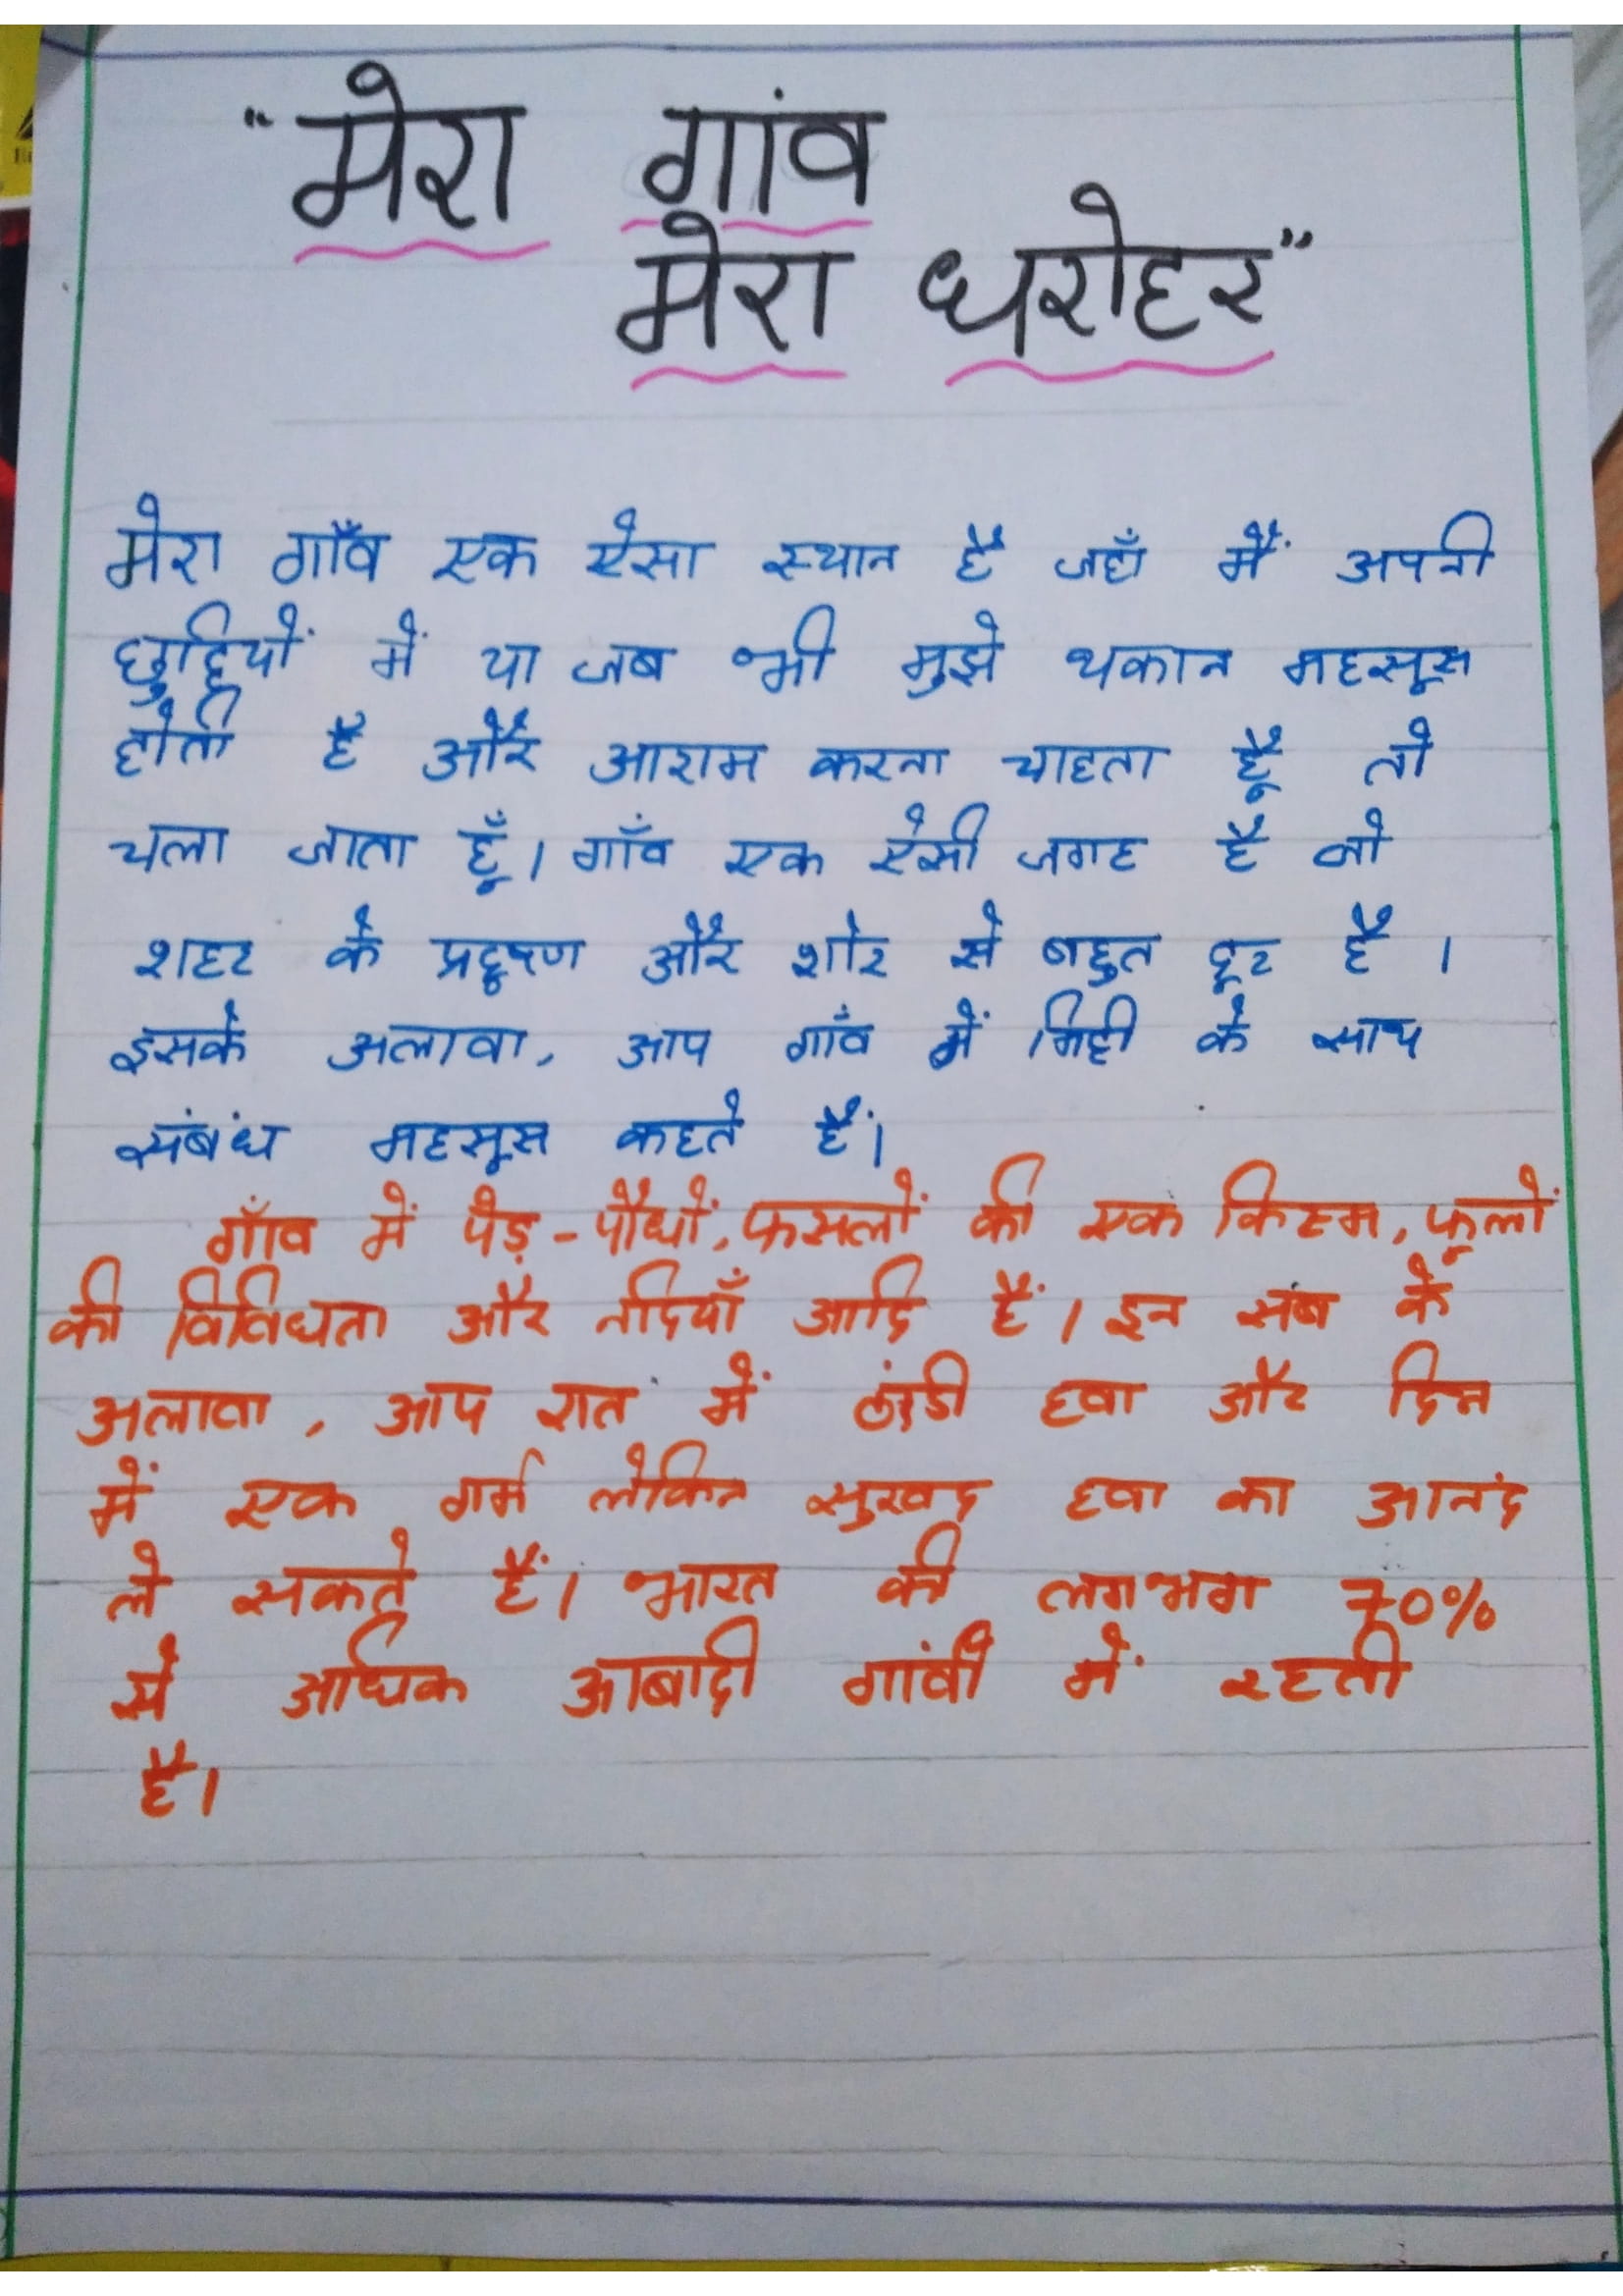 "मेरा गांव
मेरा धरोहर"
मेरा गाँव एक ऐसा स्थान है जहाँ मैं अपनी
छुट्टियों में या जब भी मुझे थकान महसूस
होती है और आराम करना चाहता हूँ तो
चला जाता हूँ। गाँव एक ऐसी जगह है जो
शहर के प्रदूषण और शोर से बहुत दूर है।
इसके अलावा, आप गाँव में मिट्टी के साथ
संबंध महसूस कहते हैं।
गाँव में पेड़-पौधों, फसलों की एक किस्म, फूलों
की विविधता और नदियाँ आदि हैं। इन सब के
अलावा, आप रात में ठंडी हवा और दिन
में एक गर्म लेकिन सुखद हवा का आनंद
ले सकते हैं। भारत की लगभग 70%
से अधिक आबादी गांवों में रहती
है।